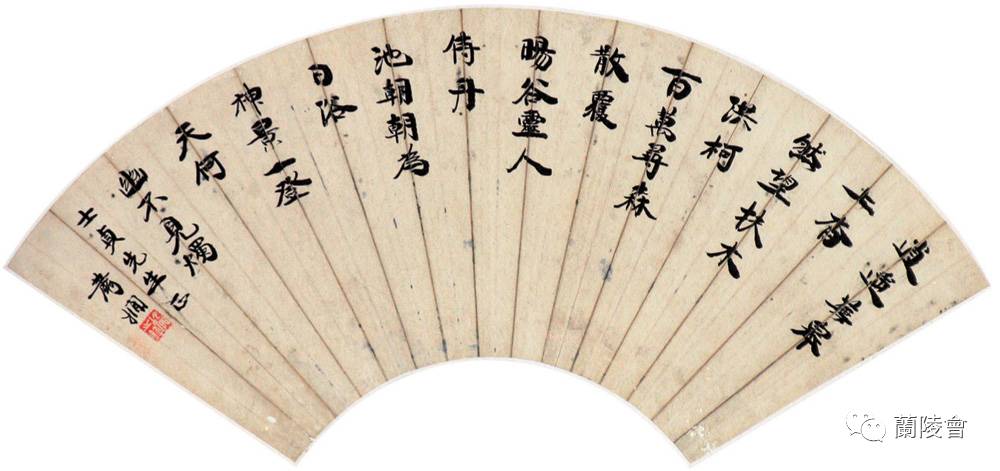 逍遙蕪皋
上杳
然望扶木
洪柯
百萬尋森
散覆
暘谷靈人
侍丹
池朝朝為
日浴
神景一登
天何
幽不見燭
士貞先生正
蘭陵會